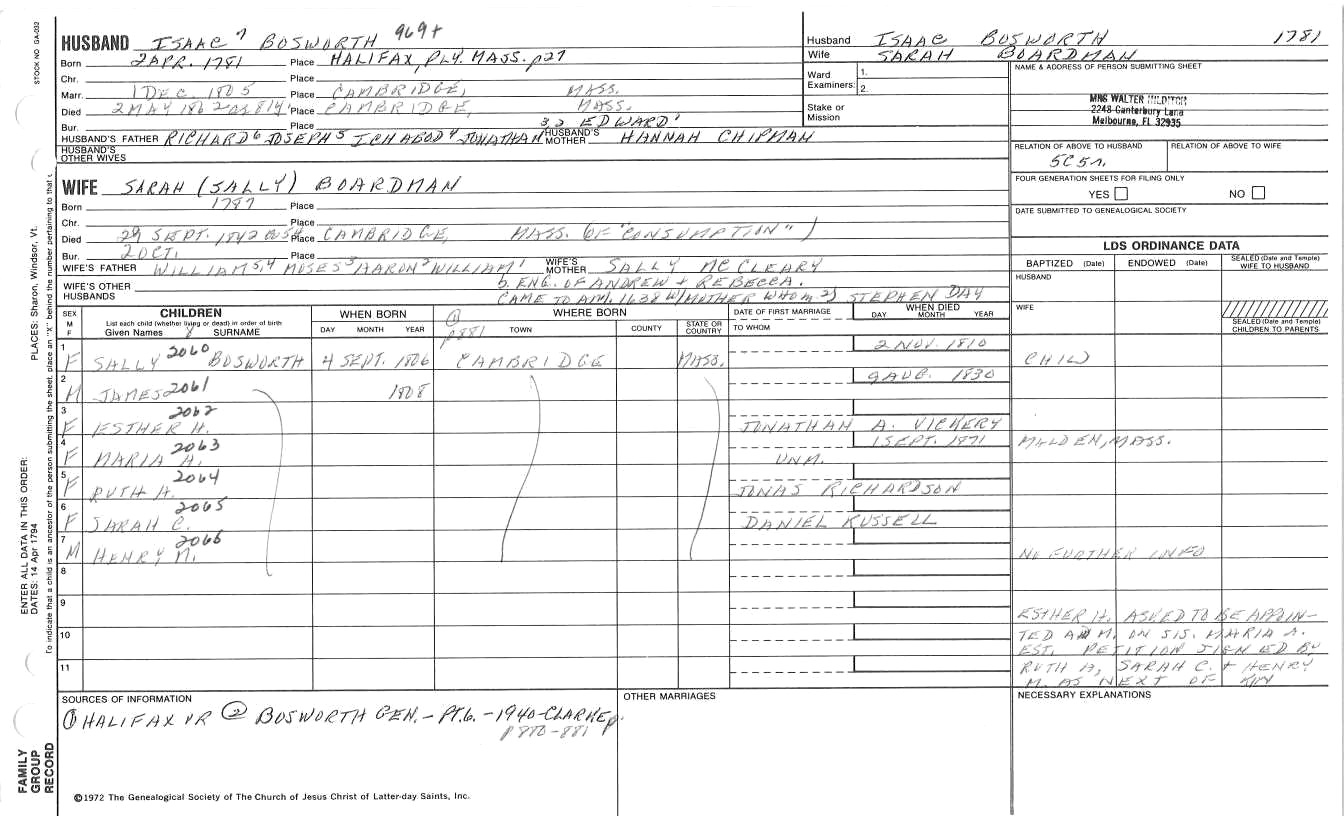 STOCK NO. GA-032
HUSBAND ISAAC 7 BOSWORTH 969+
Born 2 APR. 1781 Place HALIFAX, PLY. MASS. p27
Chr. Place
Marr. 1 DEC. 1805 Place CAMBRIDGE, MASS.
Died 2 MAY 1862 ae 81y Place CAMBRIDGE, MASS.
Bur. Place
3,2 EDWARD1
HUSBAND'S FATHER RICHARD6 JOSEPH5 ICHABOD4 JONATHAN HUSBAND'S MOTHER HANNAH CHIPMAN
HUSBAND'S OTHER WIVES
WIFE SARAH (SALLY) BOARDMAN
Born 1787 Place
Chr. Place
Died 29 SEPT. 1842 ae 54 Place CAMBRIDGE, MASS. OF "CONSUMPTION")
Bur. 2 OCT. Place
WIFE'S FATHER WILLIAM5,4 MOSES3 AARON2 WILLIAM1 WIFE'S MOTHER SALLY MCCLEARY
WIFE'S OTHER HUSBANDS
b. ENG. OF ANDREW + REBECCA.
CAME TO AM. 1638 W/MOTHER WHO m 2) STEPHEN DAY
Husband ISAAC BOSWORTH 1781
Wife SARAH BOARDMAN
Ward Examiners: 1.
2.
Stake or Mission
NAME & ADDRESS OF PERSON SUBMITTING SHEET
MRS WALTER HILDITCH
2248 Canterbury Lane
Melbourne, FL 32935
RELATION OF ABOVE TO HUSBAND RELATION OF ABOVE TO WIFE
5C5r.
FOUR GENERATION SHEETS FOR FILING ONLY
YES NO
DATE SUBMITTED TO GENEALOGICAL SOCIETY
LDS ORDINANCE DATA
BAPTIZED (Date) ENDOWED (Date) SEALED (Date and Temple) WIFE TO HUSBAND
HUSBAND
WIFE
SEALED (Date and Temple) CHILDREN TO PARENTS
SEX M F CHILDREN WHEN BORN WHERE BORN DATE OF FIRST MARRIAGE WHEN DIED
List each child (whether living or dead) in order of birth
Given Names SURNAME DAY MONTH YEAR TOWN COUNTY STATE OR COUNTRY TO WHOM DAY MONTH YEAR
② p881
1 F SALLY 2060 BOSWORTH 4 SEPT. 1806 CAMBRIDGE MASS. 2 NOV. 1810 CHILD
2 M JAMES 2061 1808 9 AUG. 1830
3 F ESTHER H. 2062 JONATHAN A. VICKERY
4 F MARIA A. 2063 UNM. 1 SEPT. 1871 MALDEN, MASS.
5 F RUTH A. 2064 JONAS RICHARDSON
6 F SARAH C. 2065 DANIEL RUSSELL
7 M HENRY M. 2066 NO FURTHER INFO
8
9
10
11
ESTHER H. ASKED TO BE APPOIN-
TED ADM. ON SIS. MARIA A.
EST. PETITION SIGNED BY
RUTH A, SARAH C. + HENRY
M. AS NEXT OF KIN
SOURCES OF INFORMATION
① HALIFAX VR ② BOSWORTH GEN. - PT. 6. - 1940 - CLARKE p.
p 880-881
OTHER MARRIAGES
NECESSARY EXPLANATIONS
©1972 The Genealogical Society of The Church of Jesus Christ of Latter-day Saints, Inc.
PLACES: Sharon, Windsor, Vt.
ENTER ALL DATA IN THIS ORDER:
DATES: 14 Apr 1794
To indicate that a child is an ancestor of the person submitting the sheet, place an "X" behind the number pertaining to that
FAMILY GROUP RECORD